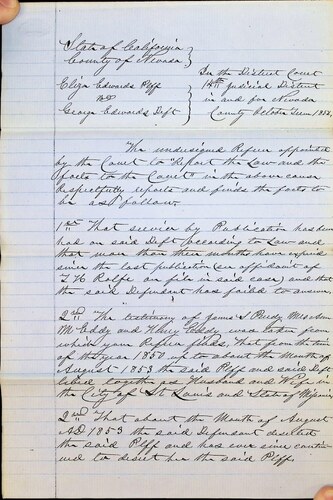 State of California
County of Nevada
In the District Court
Eliza Edwards Plff
14th judicial District
vs
in and for Nevada
George Edwards Deft
County October Term 1856
The undersigned Referee appointed
by the Court to "Report the Law and the
facts to the Court" in the above cause
respectfully reports and finds the facts to
be as follows
1st That service by Publication has been
had on said Deft according to Law and
that more than three months have expired
since the last publication (see affidavit of
T H Rolfe on file in said case) and that
the said Defendant has failed to answer
2nd The testimony of James S Mrs Ann
McEddy and was taken from
which your Referee finds, that from the
of the year 1850 up to about the Month of
August 1853 the said Plff and said Deft
lived together as Husband and Wife in
the City of St Louis and State of Missouri
2nd That about the Month of August
AD 1853 the said Defendant deserted
the said Plff and has ever since contin-
ued to desert her the said Plff